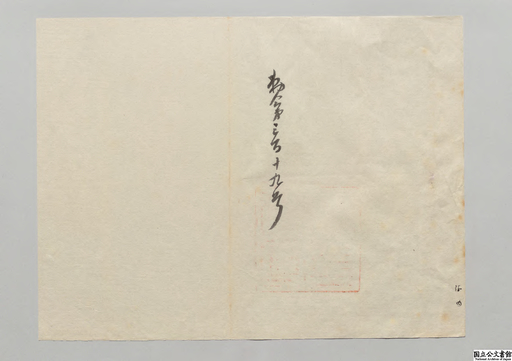 勅令第三百十九号
国立公文書館
National Archives of Japan